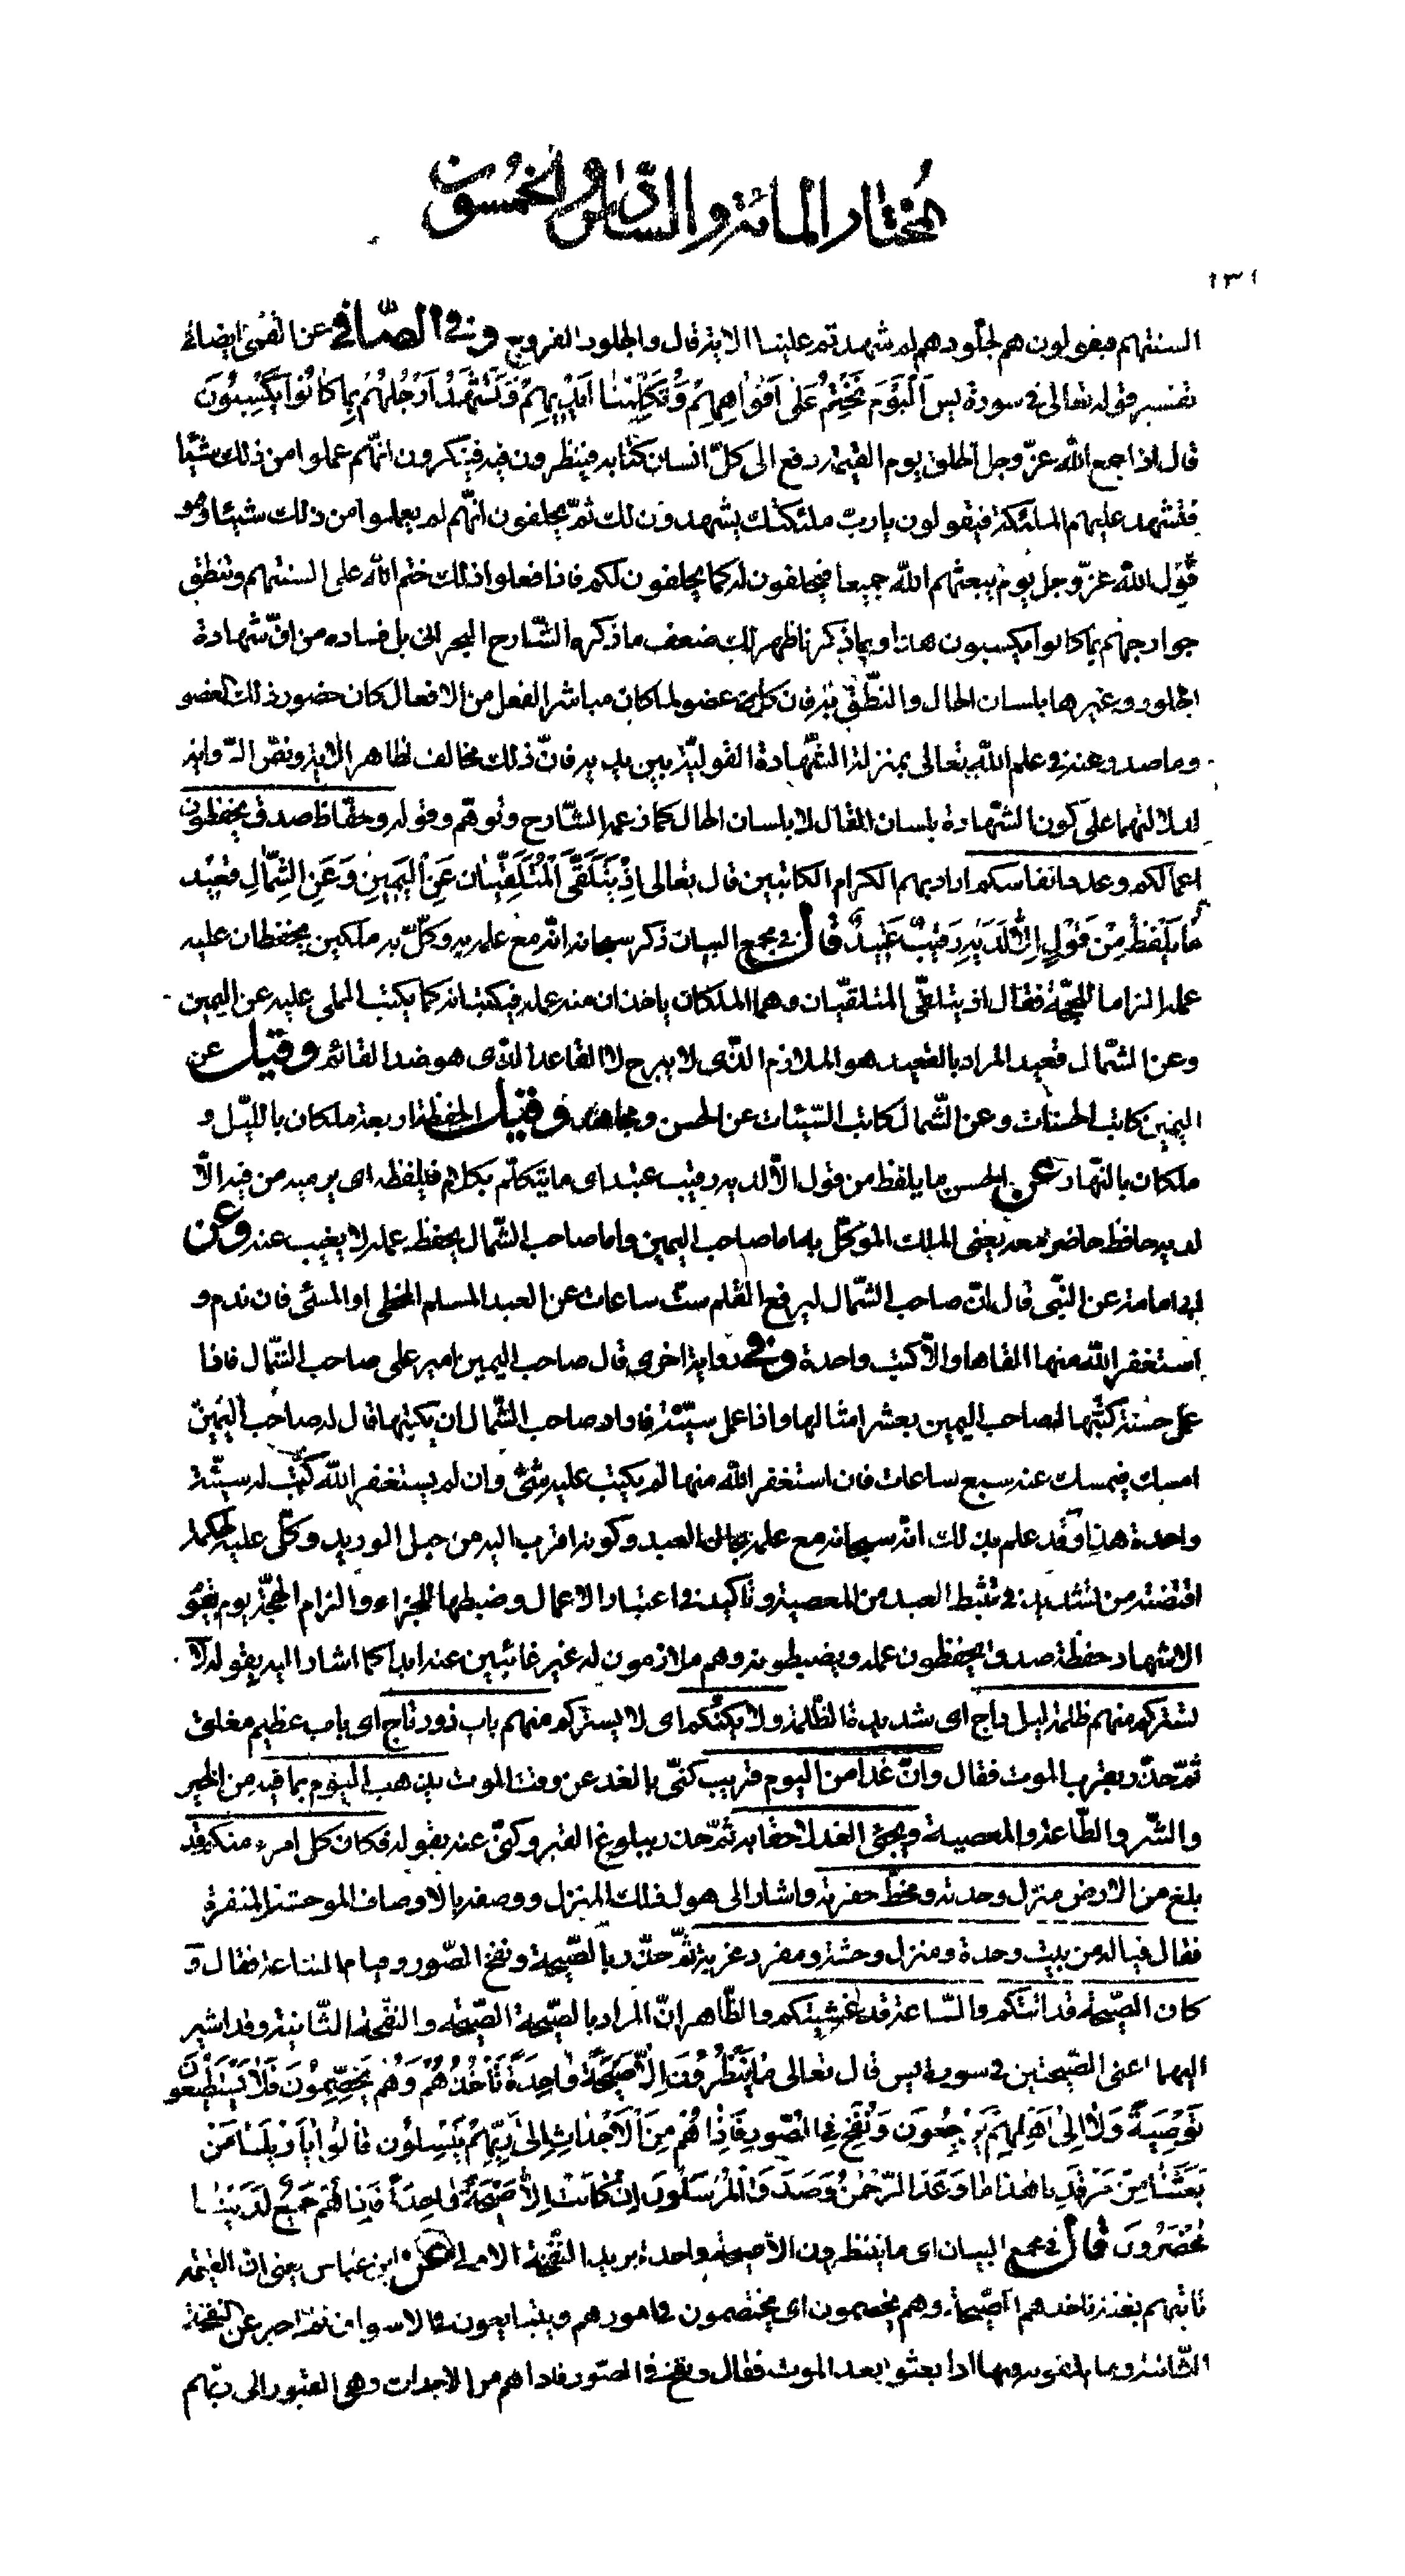 المختار المائة والسادس والخمسون
١٣١
السنتهم فيقولون هم لجلودهم لم شهدتم علينا الاية قال والجلود الفروج وفى الصّافى عن القمّى ايضا فى
تفسير قوله تعالى فى سورة يس اَلْيَوْمَ نَخْتِمُ عَلىٰ اَفْواهِهِمْ وَتُكَلِّمُنا اَيْديهِمْ وَتَشْهَدُ اَرْجُلُهُمْ بِما كانُوا يَكْسِبُونَ
قال اذا جمع الله عزّ وجل الخلق يوم القيمة دفع الى كلّ انسان كتابه فينظرون فيه فينكرون انّهم عملوا من ذلك شيئا
فتشهد عليهم الملئكة فيقولون يا ربّ ملئكتك يشهدون لك ثمّ يحلفون انّهم لم يعملوا من ذلك شيئا وهو
قول الله عزّ وجل يوم يبعثهم الله جميعا فيحلفون له كما يحلفون لكم فاذا فعلوا ذلك ختم الله على السنتهم وتنطق
جوارحهم بما كانوا يكسبون هذا وبما ذكرنا ظهر لك ضعف ما ذكره الشّارح البحرانى بل فساده من انّ شهادة
الجلود وغيرها بلسان الحال والنّطق به فان كلّ عضو لما كان مباشرا لفعل من الافعال كان حضور ذلك العضو
وما صدر عنه فى علم الله تعالى بمنزلة الشّهادة القوليّة بين يديه فانّ ذلك مخالف لظاهر الاية ونصّ الرّواية
لدلالتهما على كون الشّهادة بلسان المقال لا بلسان الحال كما زعمه الشّارح وتوهّم وقوله وحفّاظ صدق يحفظون
اعمالكم وعدد انفاسكم اراد بهم الكرام الكاتبين قال تعالى اِذْ يَتَلَقَّى الْمُتَلَقِّيانِ عَنِ الْيَمينِ وَعَنِ الشِّمالِ قَعيد
ما يَلْفِظُ مِنْ قَوْلٍ اِلاّ لَدَيْهِ رَقيبٌ عَتيدٌ قال فى مجمع البيان ذكر سبحانه انّه مع علمه به وكّل به ملكين يحفظان عليه
عمله الزاما للحجّة فقال اذ يتلقّى المتلقّيان وهما الملكان ياخذان منه عمله فيكتبانه كما يكتب المملى عليه عن اليمين
وعن الشّمال قعيد المراد بالقعيد هو الملازم الّذى لا يبرح لا القاعد الّذى هو ضد القائم وقيل عن
اليمين كاتب الحسنات وعن الشّمال كاتب السّيئات عن الحسن ومجاهد وقيل الحفظة اربعة ملكان بالليّل و
ملكان بالنّهار عن الحسن ما يلفظ من قول الّا لديه رقيب عتيد اى ما يتكلّم بكلام فيلفظه اى يرميه من فيه الّا
لديه حافظ حاضر معه يعنى الملك الموكّل به اما صاحب اليمين واما صاحب الشّمال يحفظ عمله لا يغيب عنه وعن
ابى امامة عن النّبى قال انّ صاحب الشّمال ليرفع القلم ستّ ساعات عن العبد المسلم المخطى او المسئ فان ندم و
استغفر الله منها القاها والّا كتب واحدة وفى رواية اخرى قال صاحب اليمين امير على صاحب الشّمال فاذا
عمل حسنة كتبها له صاحب اليمين بعشر امثالها واذا عمل سيّئة فاراد صاحب الشّمال ان يكتبها قال له صاحب اليمين
امسك فيمسك عنه سبع ساعات فان استغفر الله منها لم يكتب عليه شئ وان لم يستغفر الله كتب له سيئة
واحدة هذا وقد علم بذلك انّه سبحانه مع علمه بحال العبد وكونه اقرب اليه من حبل الوريد وكّل عليه لحكمة
اقتضته من تشديد فى تثبط العبد من المعصية وتاكيد فى اعتبار الاعمال وضبطها للجزاء والزام الحجّة يوم يقو
الاشهاد حفظة صدق يحفظون عمله ويضبطونه وهم ملازمون له غير غائبين عنه ابدا كما اشار اليه بقوله لا
تستركم منهم ظلمة ليل داج اى شديدة الظّلمة ولا يكنّكم اى لا يستركم منهم باب ذو رتاج اى باب عظيم مغلق
ثمّ حذّر بقرب الموت فقال وانّ غدا من اليوم قريب كنّى بالغد عن وقت الموت يذهب اليوم بما فيه من الخير
والشّر والطّاعة والمعصية ويجئ الغد لاحقا به ثمّ حذر ببلوغ القبر وكنّى عنه بقوله فكان كل امرء منكم قد
بلغ من الارض منزل وحدته ومخطّ حفرته واشار الى هول ذلك المنزل ووصفه بالاوصاف الموحشة المنفرة
فقال فيا له من بيت وحدة ومنزل وحشة ومفرد غربة ثمّ حذّر بالصّيحة ونفخ الصّور وقيام السّاعة فقال و
كان الصّيحة قد اتتكم والسّاعة قد غشيتكم والظّاهر انّ المراد بالصّيحة الصّيحة والنفّخة الثّانية وقد اشير
اليهما اعنى الصّيحتين فى سورة يس قال تعالى ما يَنْظُرُونَ اِلاّ صَيْحَةً واحِدَةً تَأْخُذُهُمْ وَهُمْ يَخِصِّمُونَ فَلا يَسْتَطيعُونَ
تَوْصِيَةً وَلا اِلىٰ اَهْلِهِمْ يَرْجِعُونَ وَنُفِخَ فِى الصُّورِ فَاِذا هُمْ مِنَ الْاَجْداثِ اِلىٰ رَبِّهِمْ يَنْسِلُونَ قالُوا يا وَيْلَنا مَنْ
بَعَثَنا مِنْ مَرْقَدِنا هذا ما وَعَدَ الرَّحْمٰنُ وَصَدَقَ الْمُرْسَلُونَ اِنْ كانَتْ اِلاّ صَيْحَةً واحِدَةً فَاِذا هُمْ جَميعٌ لَدَيْنا
مُحْضَرُونَ قال فى مجمع البيان اى ما ينتظرون الّا صيحة واحدة يريد النّفخة الاولى عن ابن عباس يعنى انّ القيمة
تاتيهم بغتة تاخذهم الصّيحة وهم يخصمون اى يختصمون فى امورهم ويتبايعون فى الاسواق ثمّ اخبر عن النّفخة
الثّانية وما يلقونه فيها اذا بعثوا بعد الموت فقال ونفخ فى الصّور فاذا هم من الاجداث وهى القبور الى ربّهم